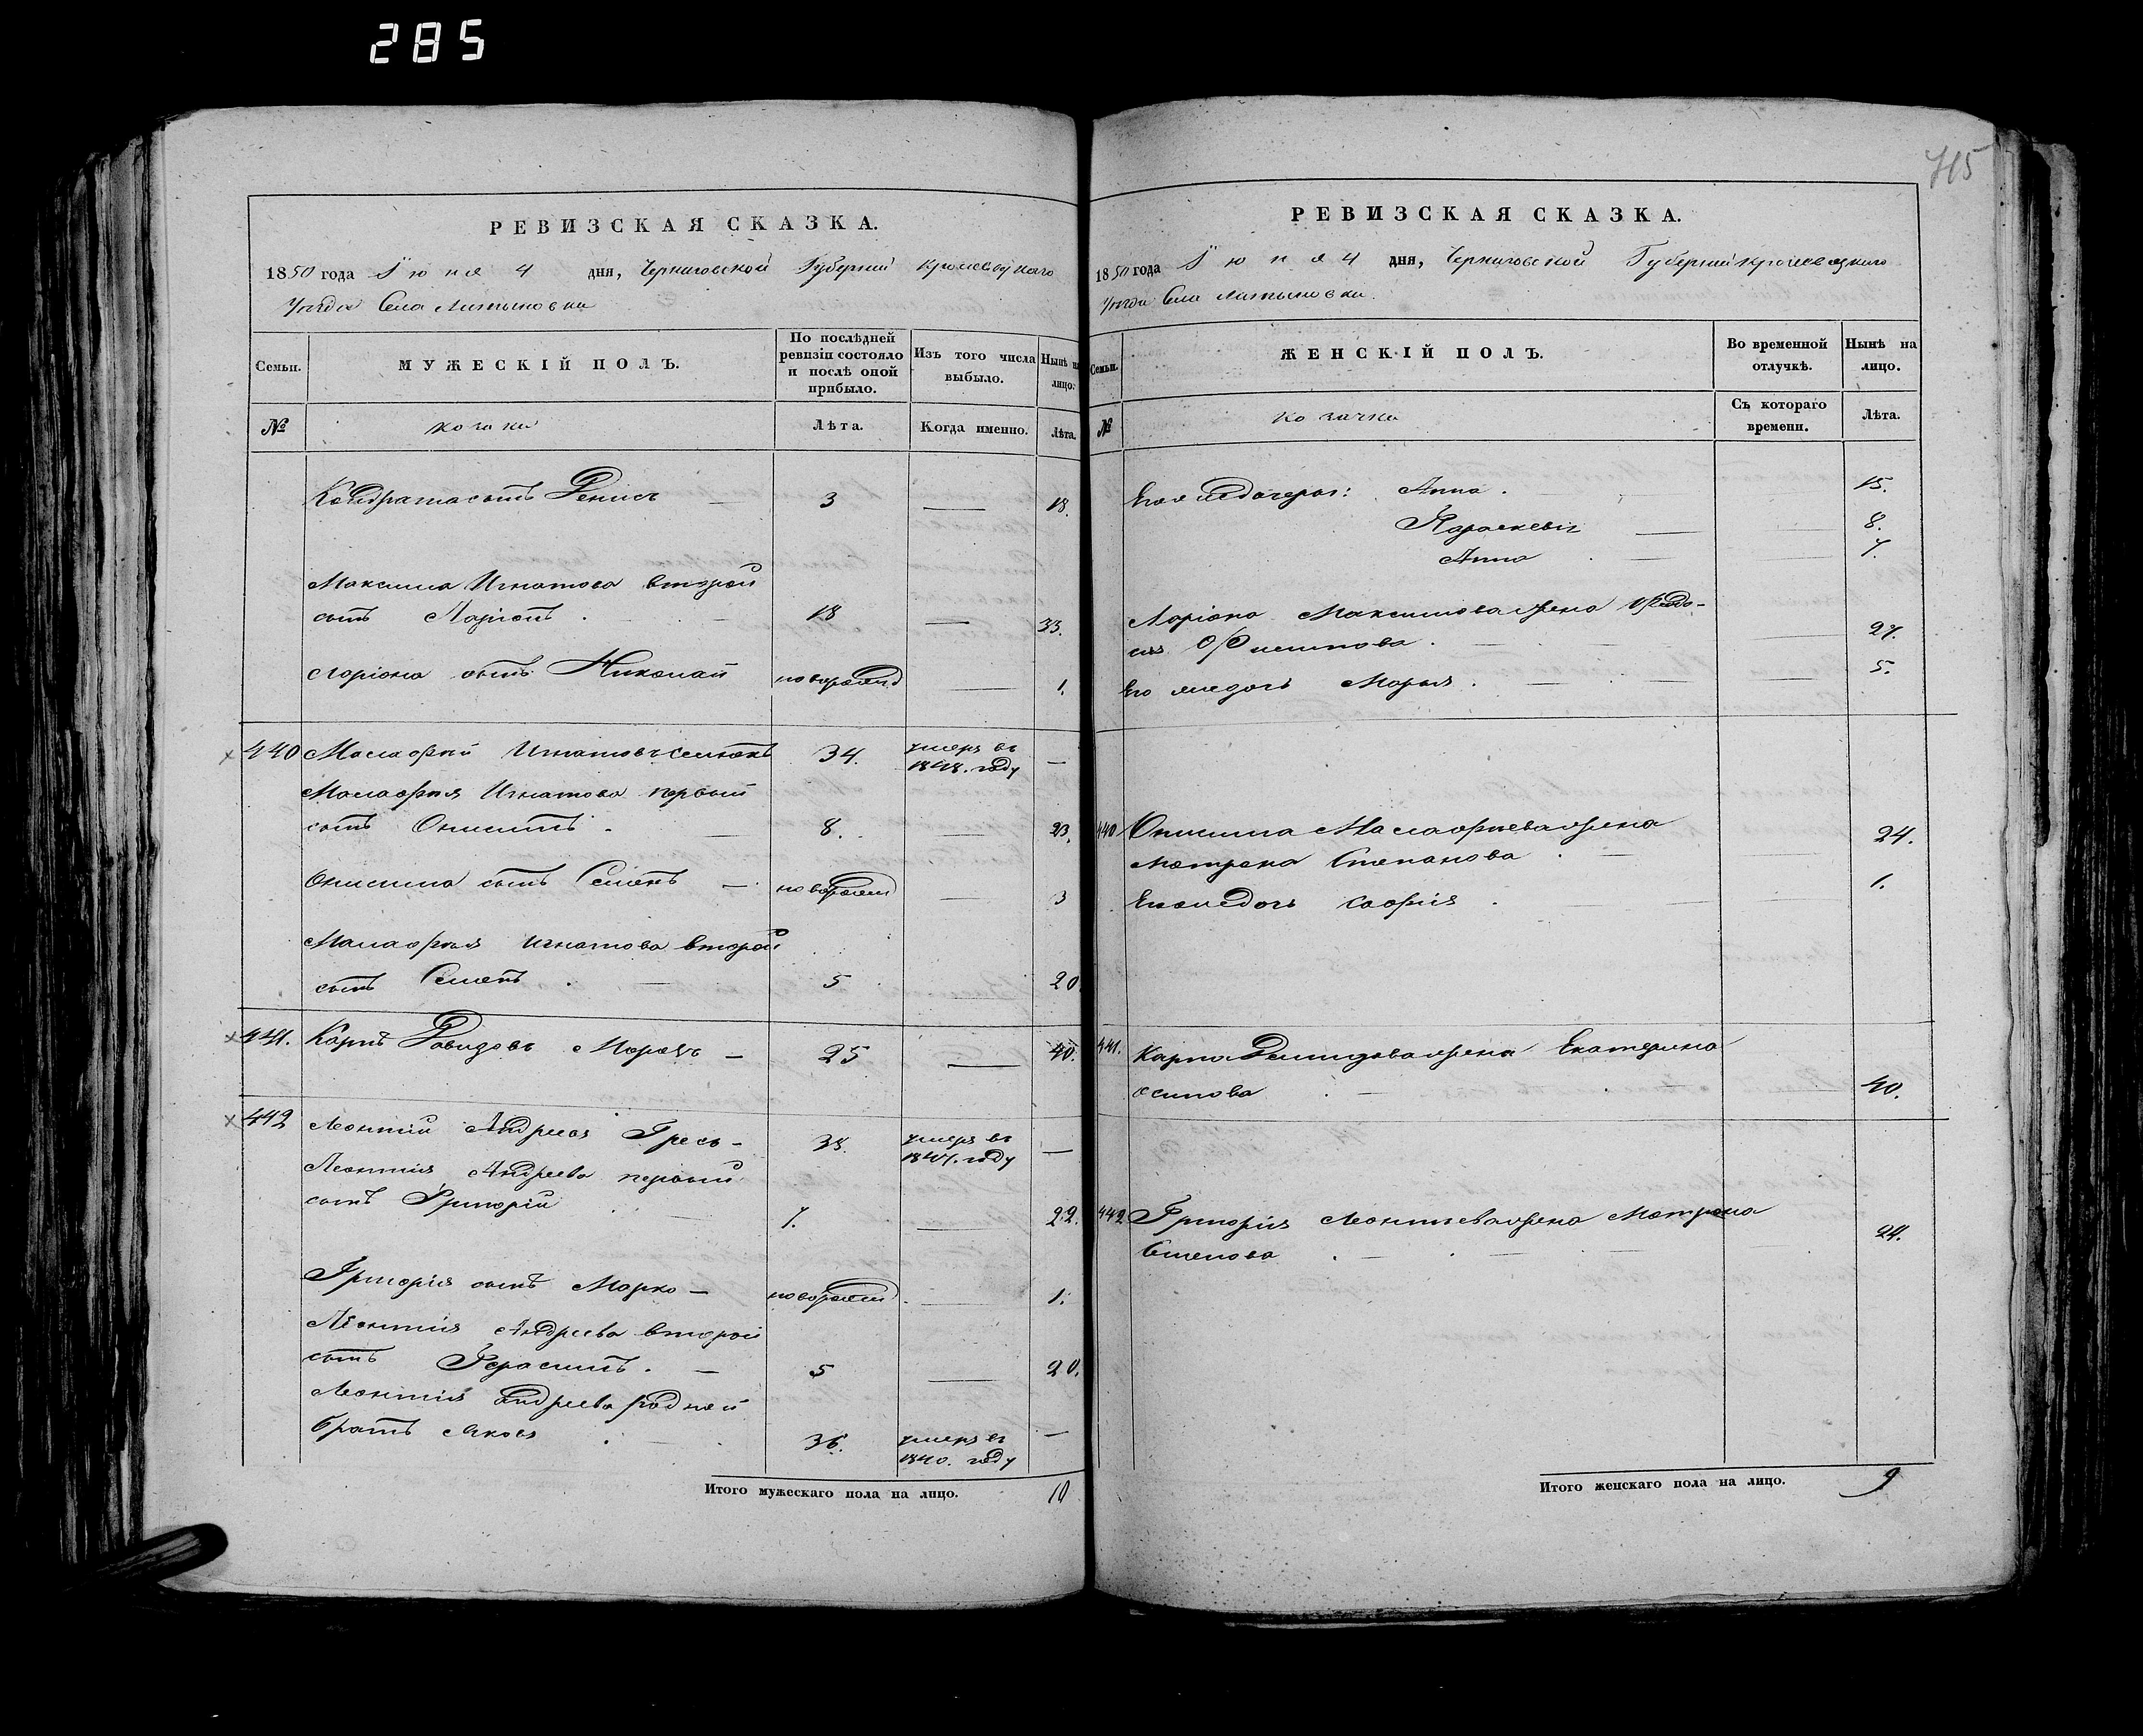 285
715
РЕВИЗСКАЯ СКАЗКА.
1850 года Іюня 4 дня, Черниговской Губерніи Кролевецкаго
Уѣзда Села
Семьи. МУЖЕСКІЙ ПОЛЪ. По послѣдней ревизіи состояло и послѣ оной прибыло. Изъ того числа выбыло. Нынѣ на лицо.
№ козаки Лѣта. Когда именно. Лѣта.
Кондрата сынъ Денисъ — 3 — 18.
Максима Игнатова второй
сынъ Ларіонъ . — 18 — 33.
Ларіона сынъ Николай новорожд — 1.
440 Малафѣй Игнатовъ 34. умеръ въ 1848. году —
Малафѣя Игнатова первый
сынъ Онисимъ . — 8. — 23.
Онисима сынъ Семенъ — новорожд — 3
Малафѣя Игнатова второй
сынъ Семенъ . — 5 — 20.
441. Карпъ Давидовъ Морозъ — 25 — 40.
442 Леонтій Андреевъ Гресь — 38. умеръ въ 1847. году —
Леонтія Андреева первый
сынъ Григорій . — 7. — 22.
Григорія сынъ Марко — новорожд — 1.
Леонтія Андреева второй
сынъ Герасимъ . — 5 — 20.
Леонтія Андреева родной
братъ Яковъ . — 36. умеръ въ 1840. году —
Итого мужескаго пола на лицо. 10
РЕВИЗСКАЯ СКАЗКА.
1850 года Іюня 4 дня, Черниговской Губерніи Кролевецкаго
Уѣзда Села
Семьи. ЖЕНСКІЙ ПОЛЪ. Во временной отлучкѣ. Нынѣ на лицо.
№ козачки Съ котораго времени. Лѣта.
дочери: Анна . — 15.
Параскевія — 8.
Анна . — 7.
Ларіона Максимова жена Ѳеодо-
сія — 27.
Его же дочь Марья . — 5.
440 Онисима Малафѣева жена
Матрена Степанова . — 24.
Его же дочь Софія . — 1.
441. Карпа Демидова жена Екатерина
Осипова . — 40.
442 Григорія Леонтьева жена Матрена
. — 24.
Итого женскаго пола на лицо. 9